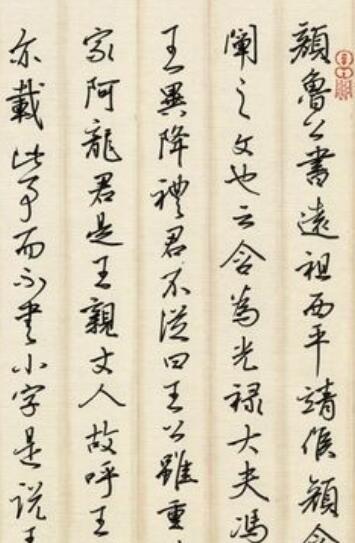 顔魯公書遠祖西平靖侯顔含
闡之文也云含為光禄大夫馮
王異降禮君不從曰王公雖重
家阿龍君是王親丈人故呼王
亦載此事而不書小字是説王